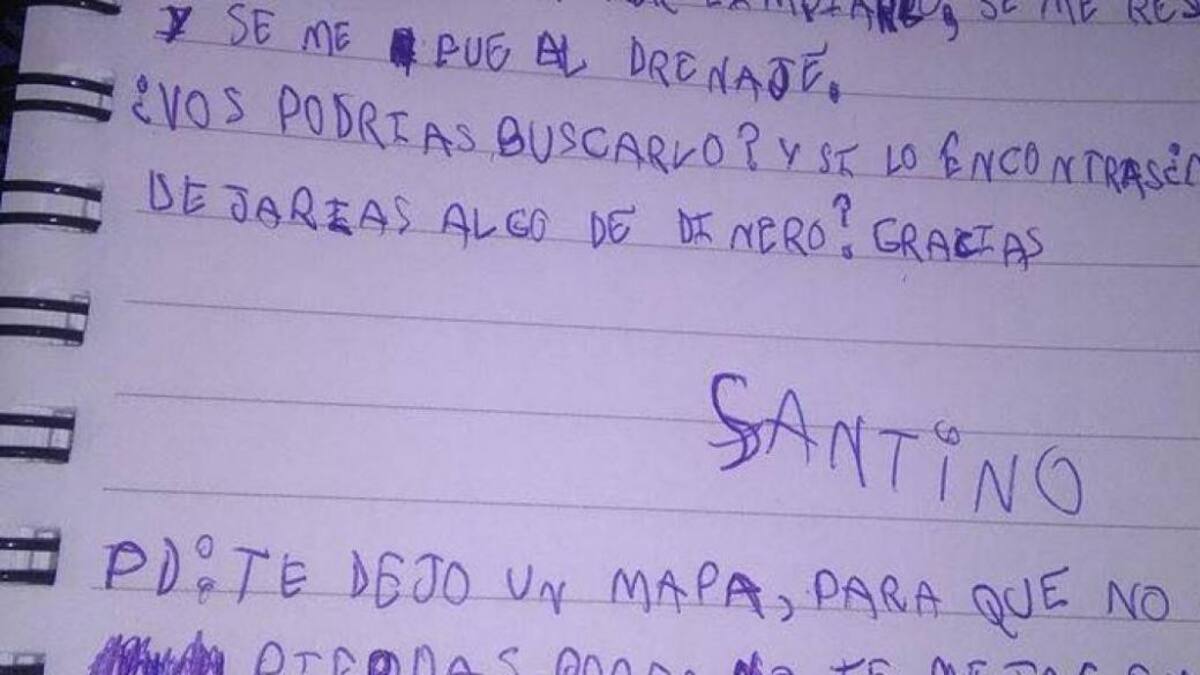 SE ME RES
Y SE ME FUE AL DRENAJE.
¿VOS PODRIAS BUSCARLO? Y SI LO ENCONTRAS ¿
DEJARIAS ALGO DE DINERO? GRACIAS
SANTINO
PD: TE DEJO UN MAPA, PARA QUE NO
PIERDAS